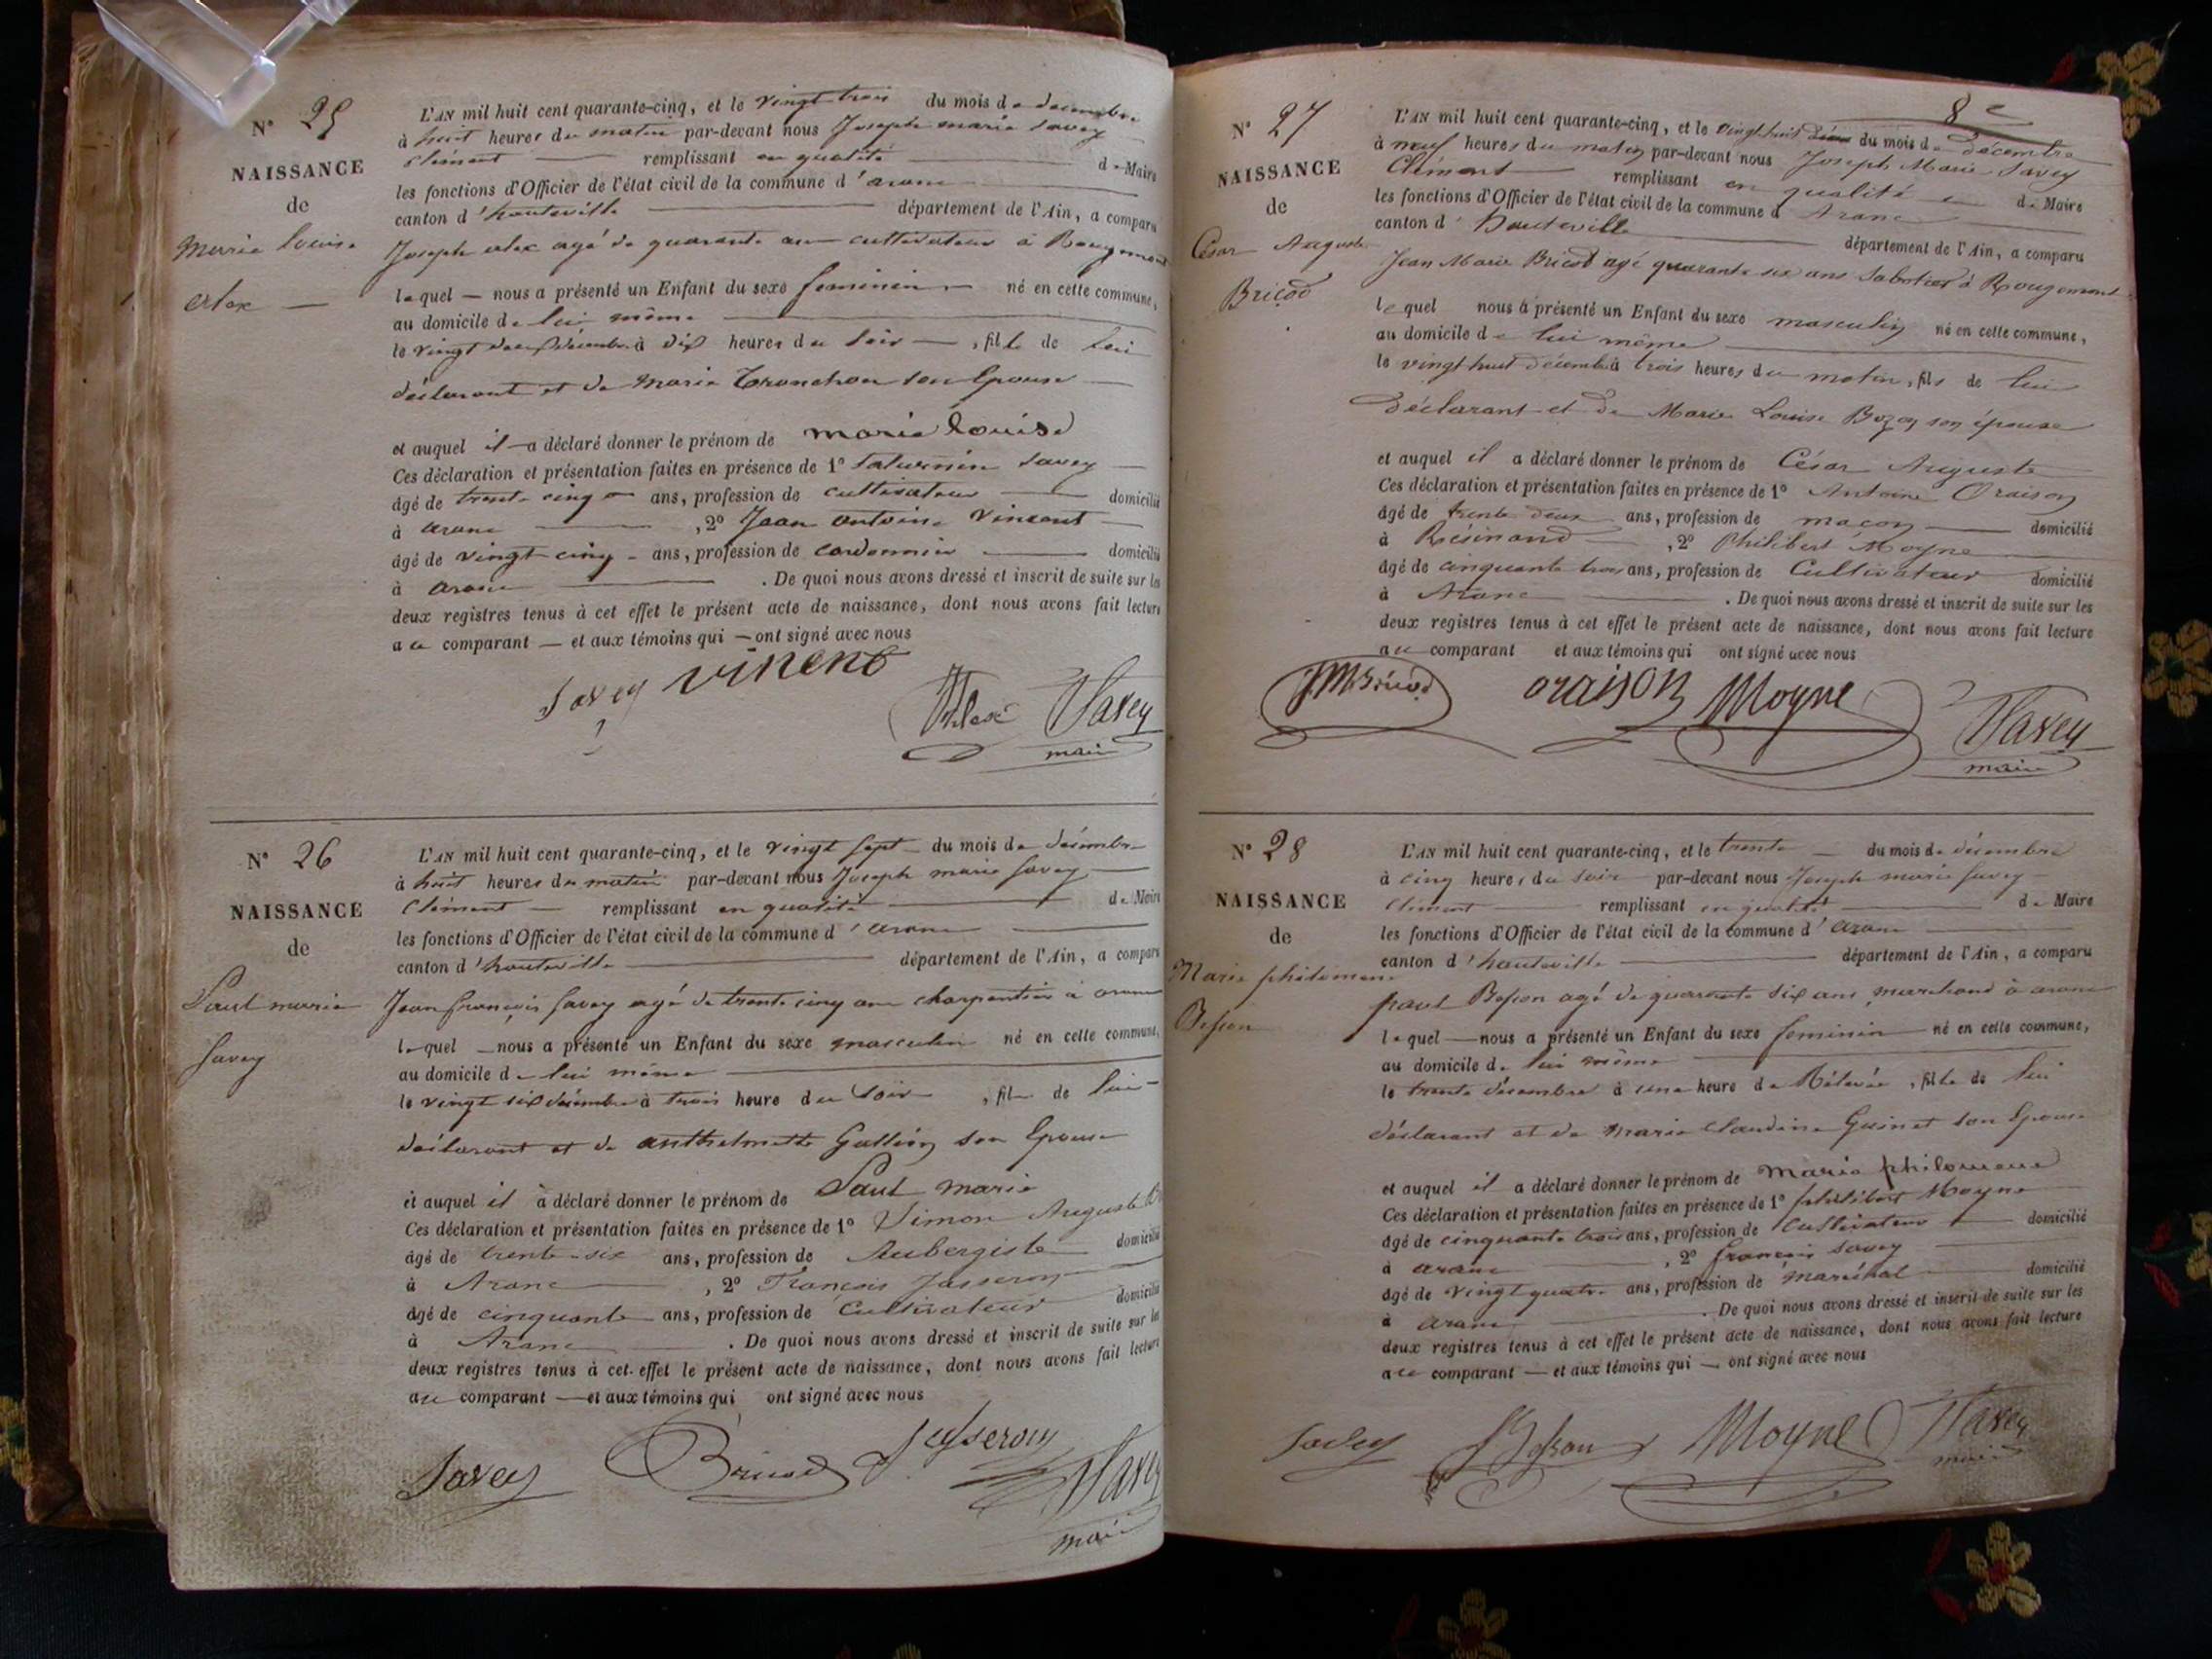 N° 25
NAISSANCE
de
Marie Louise
Alex —
L'AN mil huit cent quarante-cinq, et le vingt trois du mois de décembre
à huit heures du matin par-devant nous Joseph marie Savey
Clément — remplissant en qualité — de Maire
les fonctions d'Officier de l'état civil de la commune d'arane
canton d'hauteville — département de l'Ain, a comparu
Joseph alex agé de quarante ans cultivateur à Rougemont
lequel — nous a présenté un Enfant du sexe feminin — né en cette commune,
au domicile de lui même —
le vingt deux décembre à dix heures du soir —, fille de lui
déclarant et de Marie Tronchon son Epouse —
et auquel il a déclaré donner le prénom de marie louise
Ces déclaration et présentation faites en présence de 1° Saturnin Savey —
âgé de trente cinq — ans, profession de cultivateur — domicilié
à arane — , 2° Jean antoine Vincent —
âgé de vingt cinq — ans, profession de cordonnier — domicilié
à arane — . De quoi nous avons dressé et inscrit de suite sur les
deux registres tenus à cet effet le présent acte de naissance, dont nous avons fait lecture
au comparant — et aux témoins qui — ont signé avec nous
Savey vinent Alex Savey
maire
N° 26
NAISSANCE
de
Paul marie
Savey
L'AN mil huit cent quarante-cinq, et le vingt sept du mois de décembre
à huit heures du matin par-devant nous Joseph marie Savey —
Clément — remplissant en qualité — de Maire
les fonctions d'Officier de l'état civil de la commune d'arane —
canton d'hauteville — département de l'Ain, a comparu
Jean françois Savey agé de trente cinq ans charpentier à arane
lequel — nous a présenté un Enfant du sexe masculin né en cette commune,
au domicile de lui même —
le vingt six décembre à trois heure du soir —, fils de lui —
déclarant et de anthelmette Gallien son Epouse
et auquel il a déclaré donner le prénom de Paul marie
Ces déclaration et présentation faites en présence de 1° Simon Auguste
âgé de trente-six ans, profession de Aubergiste domicilié
à Arane — , 2° François Jasseron —
âgé de cinquante ans, profession de Cultivateur domicilié
à Arane — . De quoi nous avons dressé et inscrit de suite sur les
deux registres tenus à cet effet le présent acte de naissance, dont nous avons fait lecture
au comparant — et aux témoins qui ont signé avec nous
Savey Bricod Jasseron Savey
maire
8e
N° 27
NAISSANCE
de
César Auguste
Bricod
L'AN mil huit cent quarante-cinq, et le vingt huit du mois de décembre
à neuf heures du matin par-devant nous Joseph Marie Savey
Clément — remplissant en qualité — de Maire
les fonctions d'Officier de l'état civil de la commune d Arane
canton d'Hauteville — département de l'Ain, a comparu
Jean Marie Bricod agé quarante six ans Sabotier à Rougemont
lequel nous a présenté un Enfant du sexe masculin né en cette commune,
au domicile de lui même —
le vingt huit décembre à trois heures du matin, fils de lui
Déclarant et de Marie Louise Bozon son épouse
et auquel il a déclaré donner le prénom de César Auguste
Ces déclaration et présentation faites en présence de 1° Antoine Oraison
âgé de trente deux ans, profession de maçon — domicilié
à Résinand — , 2° Philibert Moyne —
âgé de cinquante trois ans, profession de Cultivateur domicilié
à Arane — . De quoi nous avons dressé et inscrit de suite sur les
deux registres tenus à cet effet le présent acte de naissance, dont nous avons fait lecture
au comparant et aux témoins qui ont signé avec nous
JM Bricod oraison Moyne Savey
maire
N° 28
NAISSANCE
de
Marie philomene
Besson
L'AN mil huit cent quarante-cinq, et le trente — du mois de décembre
à cinq heures du soir par-devant nous Joseph marie Savey —
Clément — remplissant en qualité — de Maire
les fonctions d'Officier de l'état civil de la commune d'arane —
canton d'hauteville — département de l'Ain, a comparu
paul Besson agé de quarante six ans marchand à arane
lequel — nous a présenté un Enfant du sexe feminin — né en cette commune,
au domicile de lui même —
le trente décembre à une heure de Rélevée, fille de lui
déclarant et de Marie Claudine Guinet son Epouse
et auquel il a déclaré donner le prénom de marie philomene
Ces déclaration et présentation faites en présence de 1° philibert Moyne —
âgé de cinquante trois ans, profession de Cultivateur — domicilié
à arane — , 2° françois Savey —
âgé de vingt quatre ans, profession de maréchal — domicilié
à arane — . De quoi nous avons dressé et inscrit de suite sur les
deux registres tenus à cet effet le présent acte de naissance, dont nous avons fait lecture
au comparant — et aux témoins qui — ont signé avec nous
Savey Besson Moyne Savey
maire